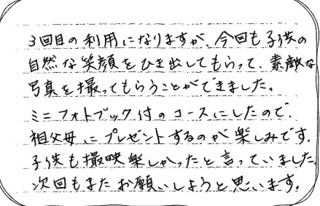 3回目の利用になりますが、今回も子供の
自然な笑顔をひき出してもらって、素敵な
写真を撮ってもらうことができました。
ミニフォトブック付のコースにしたので、
祖父母にプレゼントするのが楽しみです。
子供も撮影楽しかったと言っていました。
次回もまたお願いしようと思います。